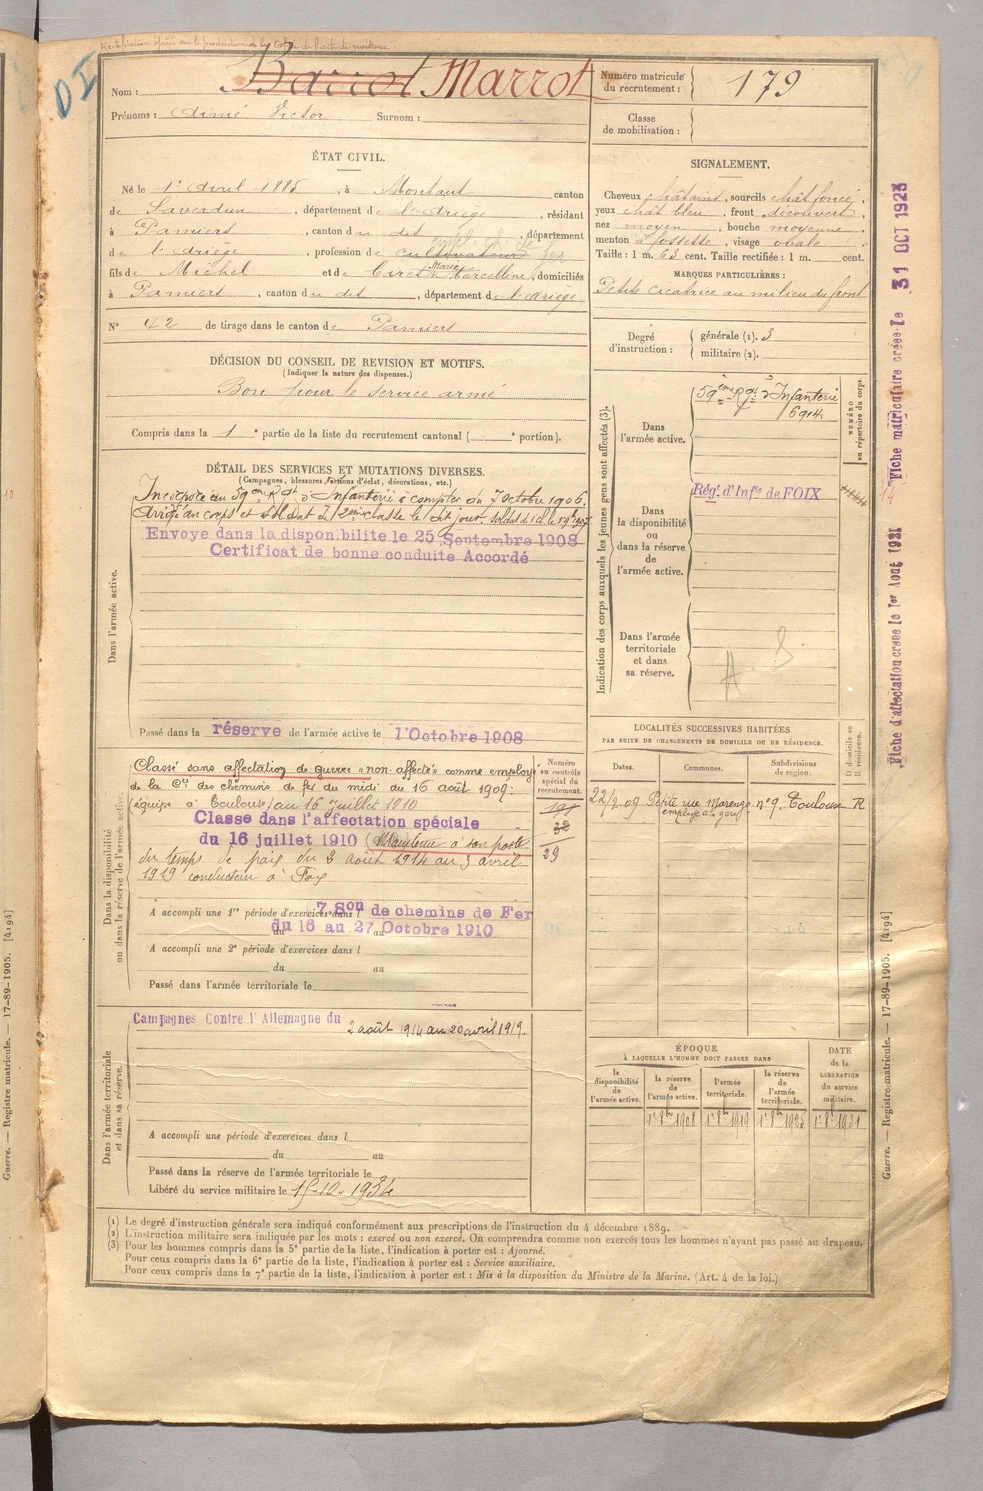 Rectification opérée sur la production de la copie de l'acte de naissance.
DI
Nom : Barrot Marrot
Prénoms : Aimé Victor Surnom :
Numéro matricule du recrutement : 179
Classe de mobilisation :
ÉTAT CIVIL.
Né le 1er Avril 1885, à Montaut canton
de Saverdun, département de l'Ariège, résidant
à Pamiers, canton du dit, département
de l'Ariège, profession de cultivateur empl. ch. de fer
fils de Michel et de Cires Marie Marcelline, domiciliés
à Pamiers, canton du dit, département de l'Ariège
N° 42 de tirage dans le canton de Pamiers
SIGNALEMENT.
Cheveux châtains, sourcils chât foncé,
yeux chât bleu, front découvert,
nez moyen, bouche moyenne,
menton à fossette, visage ovale
Taille : 1 m. 63 cent. Taille rectifiée : 1 m. cent.
MARQUES PARTICULIÈRES :
Petite cicatrice au milieu du front
Degré d'instruction : générale (1). 3
militaire (2).
DÉCISION DU CONSEIL DE REVISION ET MOTIFS.
(Indiquer la nature des dispenses.)
Bon pour le service armé
Compris dans la 1e partie de la liste du recrutement cantonal ( e portion).
DÉTAIL DES SERVICES ET MUTATIONS DIVERSES.
(Campagnes, blessures, actions d'éclat, décorations, etc.)
Dans l'armée active.
Incorporé au 59ème Rgt d'Infanterie à compter du 7 octobre 1906.
Arrivé au corps et soldat de 2ème classe le dit jour. Soldat de 1e cl. le
Envoye dans la disponibilite le 25 Septembre 1908
Certificat de bonne conduite Accordé
Passé dans la réserve de l'armée active le 1 Octobre 1908
Indication des corps auxquels les jeunes gens sont affectés (3).
NUMÉRO au répertoire du corps.
Dans l'armée active.
59ème Rgt d'Infanterie
6904
Dans la disponibilité ou dans la réserve de l'armée active.
Régt d'Infie de FOIX
Dans l'armée territoriale et dans sa réserve.
Dans la disponibilité ou dans la réserve de l'armée active.
Classé sans affectation de guerre "non affecté" comme employé
de la Cie des chemins de fer du midi du 16 août 1909:
(équipe à Toulouse) au 16 Juillet 1910
Classe dans l'affectation spéciale
du 16 juillet 1910 (Maintenu à son poste
du temps de paix du 2 août 1914 au 3 avril
1919 conducteur à Foix
A accompli une 1re période d'exercices dans l 7 Son de chemins de Fer
du 16 au 27 Octobre 1910
A accompli une 2e période d'exercices dans l
du au
Passé dans l'armée territoriale le
Numéro au contrôle spécial du recrutement.
198
32
29
LOCALITÉS SUCCESSIVES HABITÉES
PAR SUITE DE CHANGEMENTS DE DOMICILE OU DE RÉSIDENCE.
D domicile ou R résidence.
Dates. Communes. Subdivisions de région.
22/2.09 Petite rue Marengo n° 9. Toulouse R
Dans l'armée territoriale et dans sa réserve.
Campagnes Contre l'Allemagne du 2 août 1914 au 20 avril 1919.
A accompli une période d'exercices dans l
du au
Passé dans la réserve de l'armée territoriale le
Libéré du service militaire le 15-10-1934
ÉPOQUE
À LAQUELLE L'HOMME DOIT PASSER DANS
la disponibilité de l'armée active.
la réserve de l'armée active.
l'armée territoriale.
la réserve de l'armée territoriale.
DATE de la LIBÉRATION du service militaire.
1er 8bre 1908
1er 8bre 1919
1er 8bre 1925
1er 8bre 1931
(1) Le degré d'instruction générale sera indiqué conformément aux prescriptions de l'instruction du 4 décembre 1889.
(2) L'instruction militaire sera indiquée par les mots : exercé ou non exercé. On comprendra comme non exercés tous les hommes n'ayant pas passé au drapeau.
(3) Pour les hommes compris dans la 5e partie de la liste, l'indication à porter est : Ajourné.
Pour ceux compris dans la 6e partie de la liste, l'indication à porter est : Service auxiliaire.
Pour ceux compris dans la 7e partie de la liste, l'indication à porter est : Mis à la disposition du Ministre de la Marine. (Art. 4 de la loi.)
Fiche matriculaire créée le 31 OCT 1923
Fiche d'affectation créée le 1er Août 1921
Guerre. — Registre matricule. — 17-89-1905. [4194]
Guerre. — Registre matricule. — 17-89-1905. [4194]